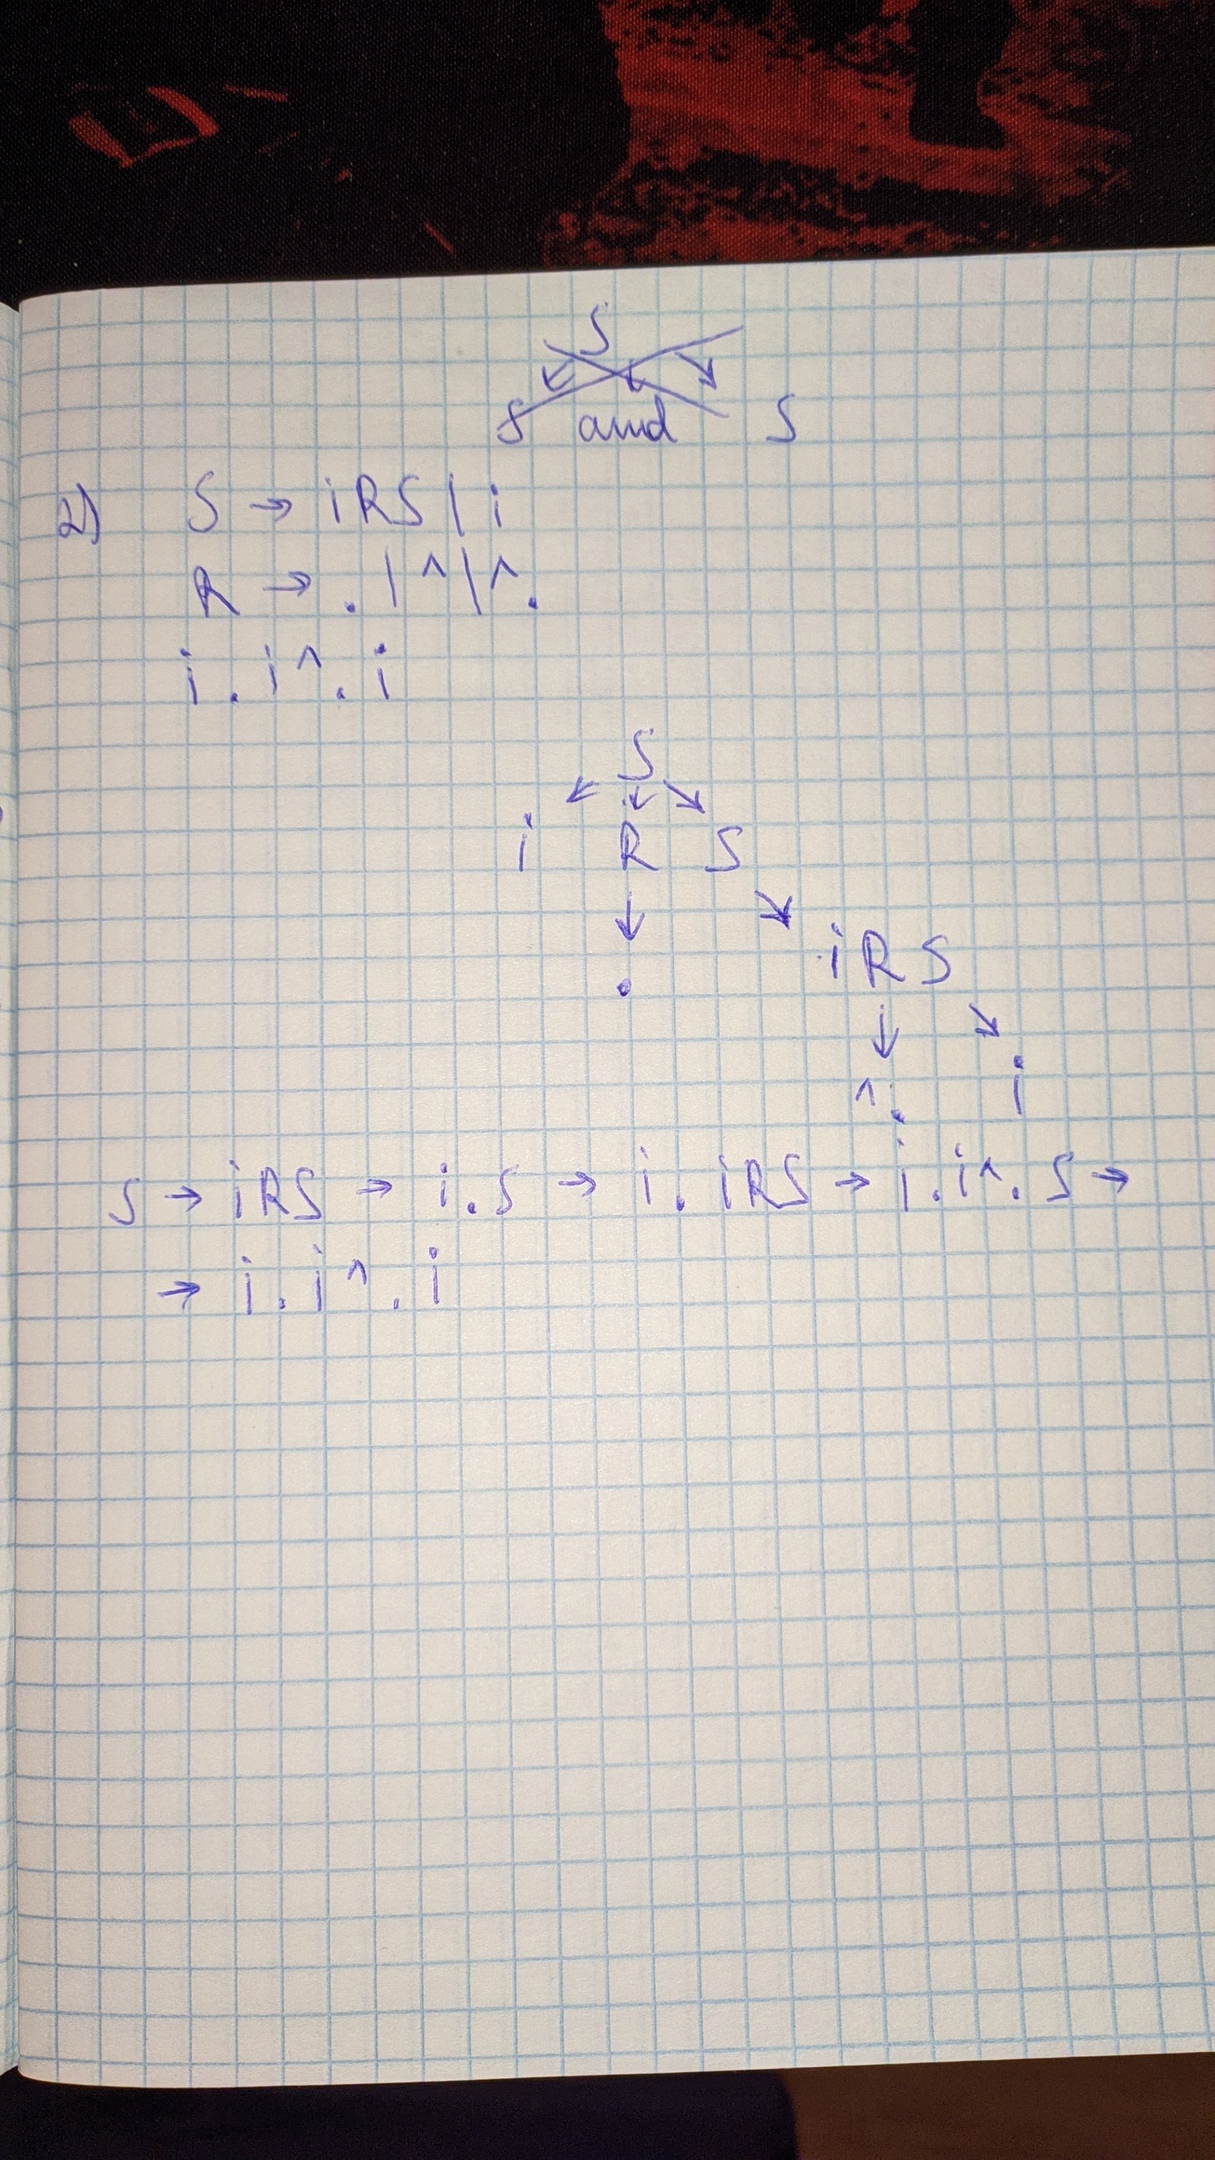 S
S and S
2) S → iRS | i
R → . | ^ | ^.
i . i ^ . i
S
↙ ↓ ↘
i R S
↓ ↘
. iRS
↓ ↘
^. i
S → iRS → i.S → i.iRS → i.i^.S →
→ i.i^.i